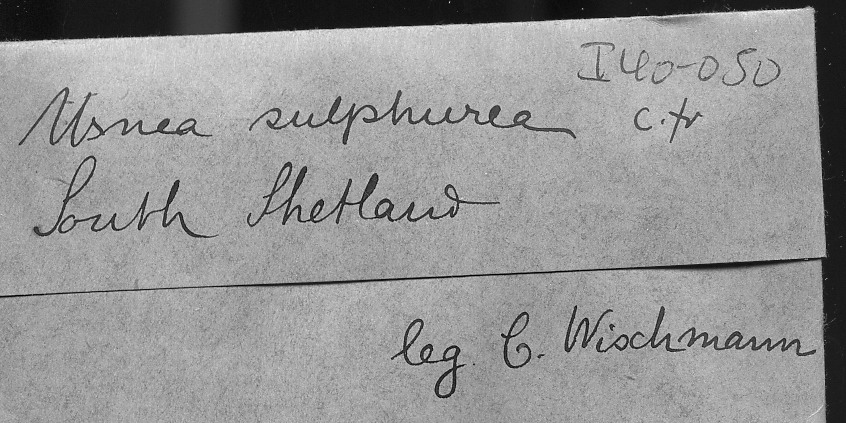 I40-050
c. fr
Usnea sulphurea
South Shetland
leg. C. Wischmann